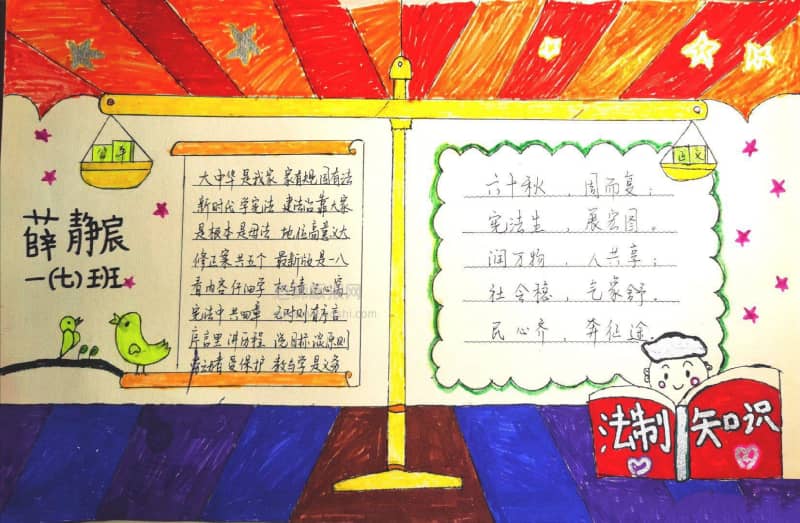 薛静宸
一(七)班
大中华是我家 家有规国有法
新时代学宪法 建法治靠大家
是根本是母法 地位高意义大
修正案共五个 最新版是一八
看内容仔细学
宪法中共四章 元时则有序言
序言里讲历程 说目标谈原则
是保护 教与学是义务
六十秋，周而复；
宪法生，展宏图。
润万物，人共享；
社会稳，气象舒。
民心齐，奔征途
法制 知识